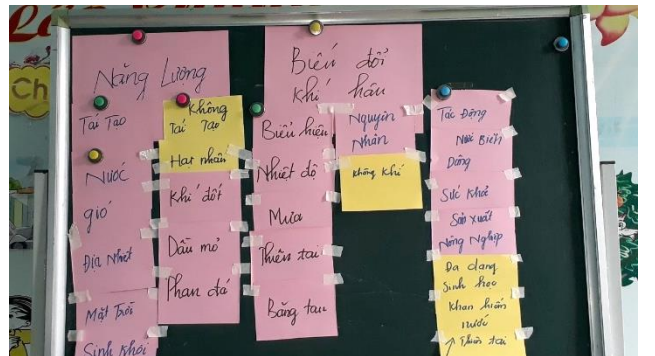 Ch
Năng Lượng
Tái Tạo
Nước
gió
Địa Nhiệt
Mặt Trời
Sinh khối
Không
Tái Tạo
Hạt nhân
Khí đốt
Dầu mỏ
Than đá
Biến đổi
khí hậu
Biểu hiện
Nhiệt độ
Mưa
Thiên tai
Băng tan
Nguyên
Nhân
không khí
Tác Động
Nước Biển
Dâng
Sức Khoẻ
Sản xuất
Nông Nghiệp
Đa dạng
Sinh học
Khan hiếm
nước
↑ Thiên tai